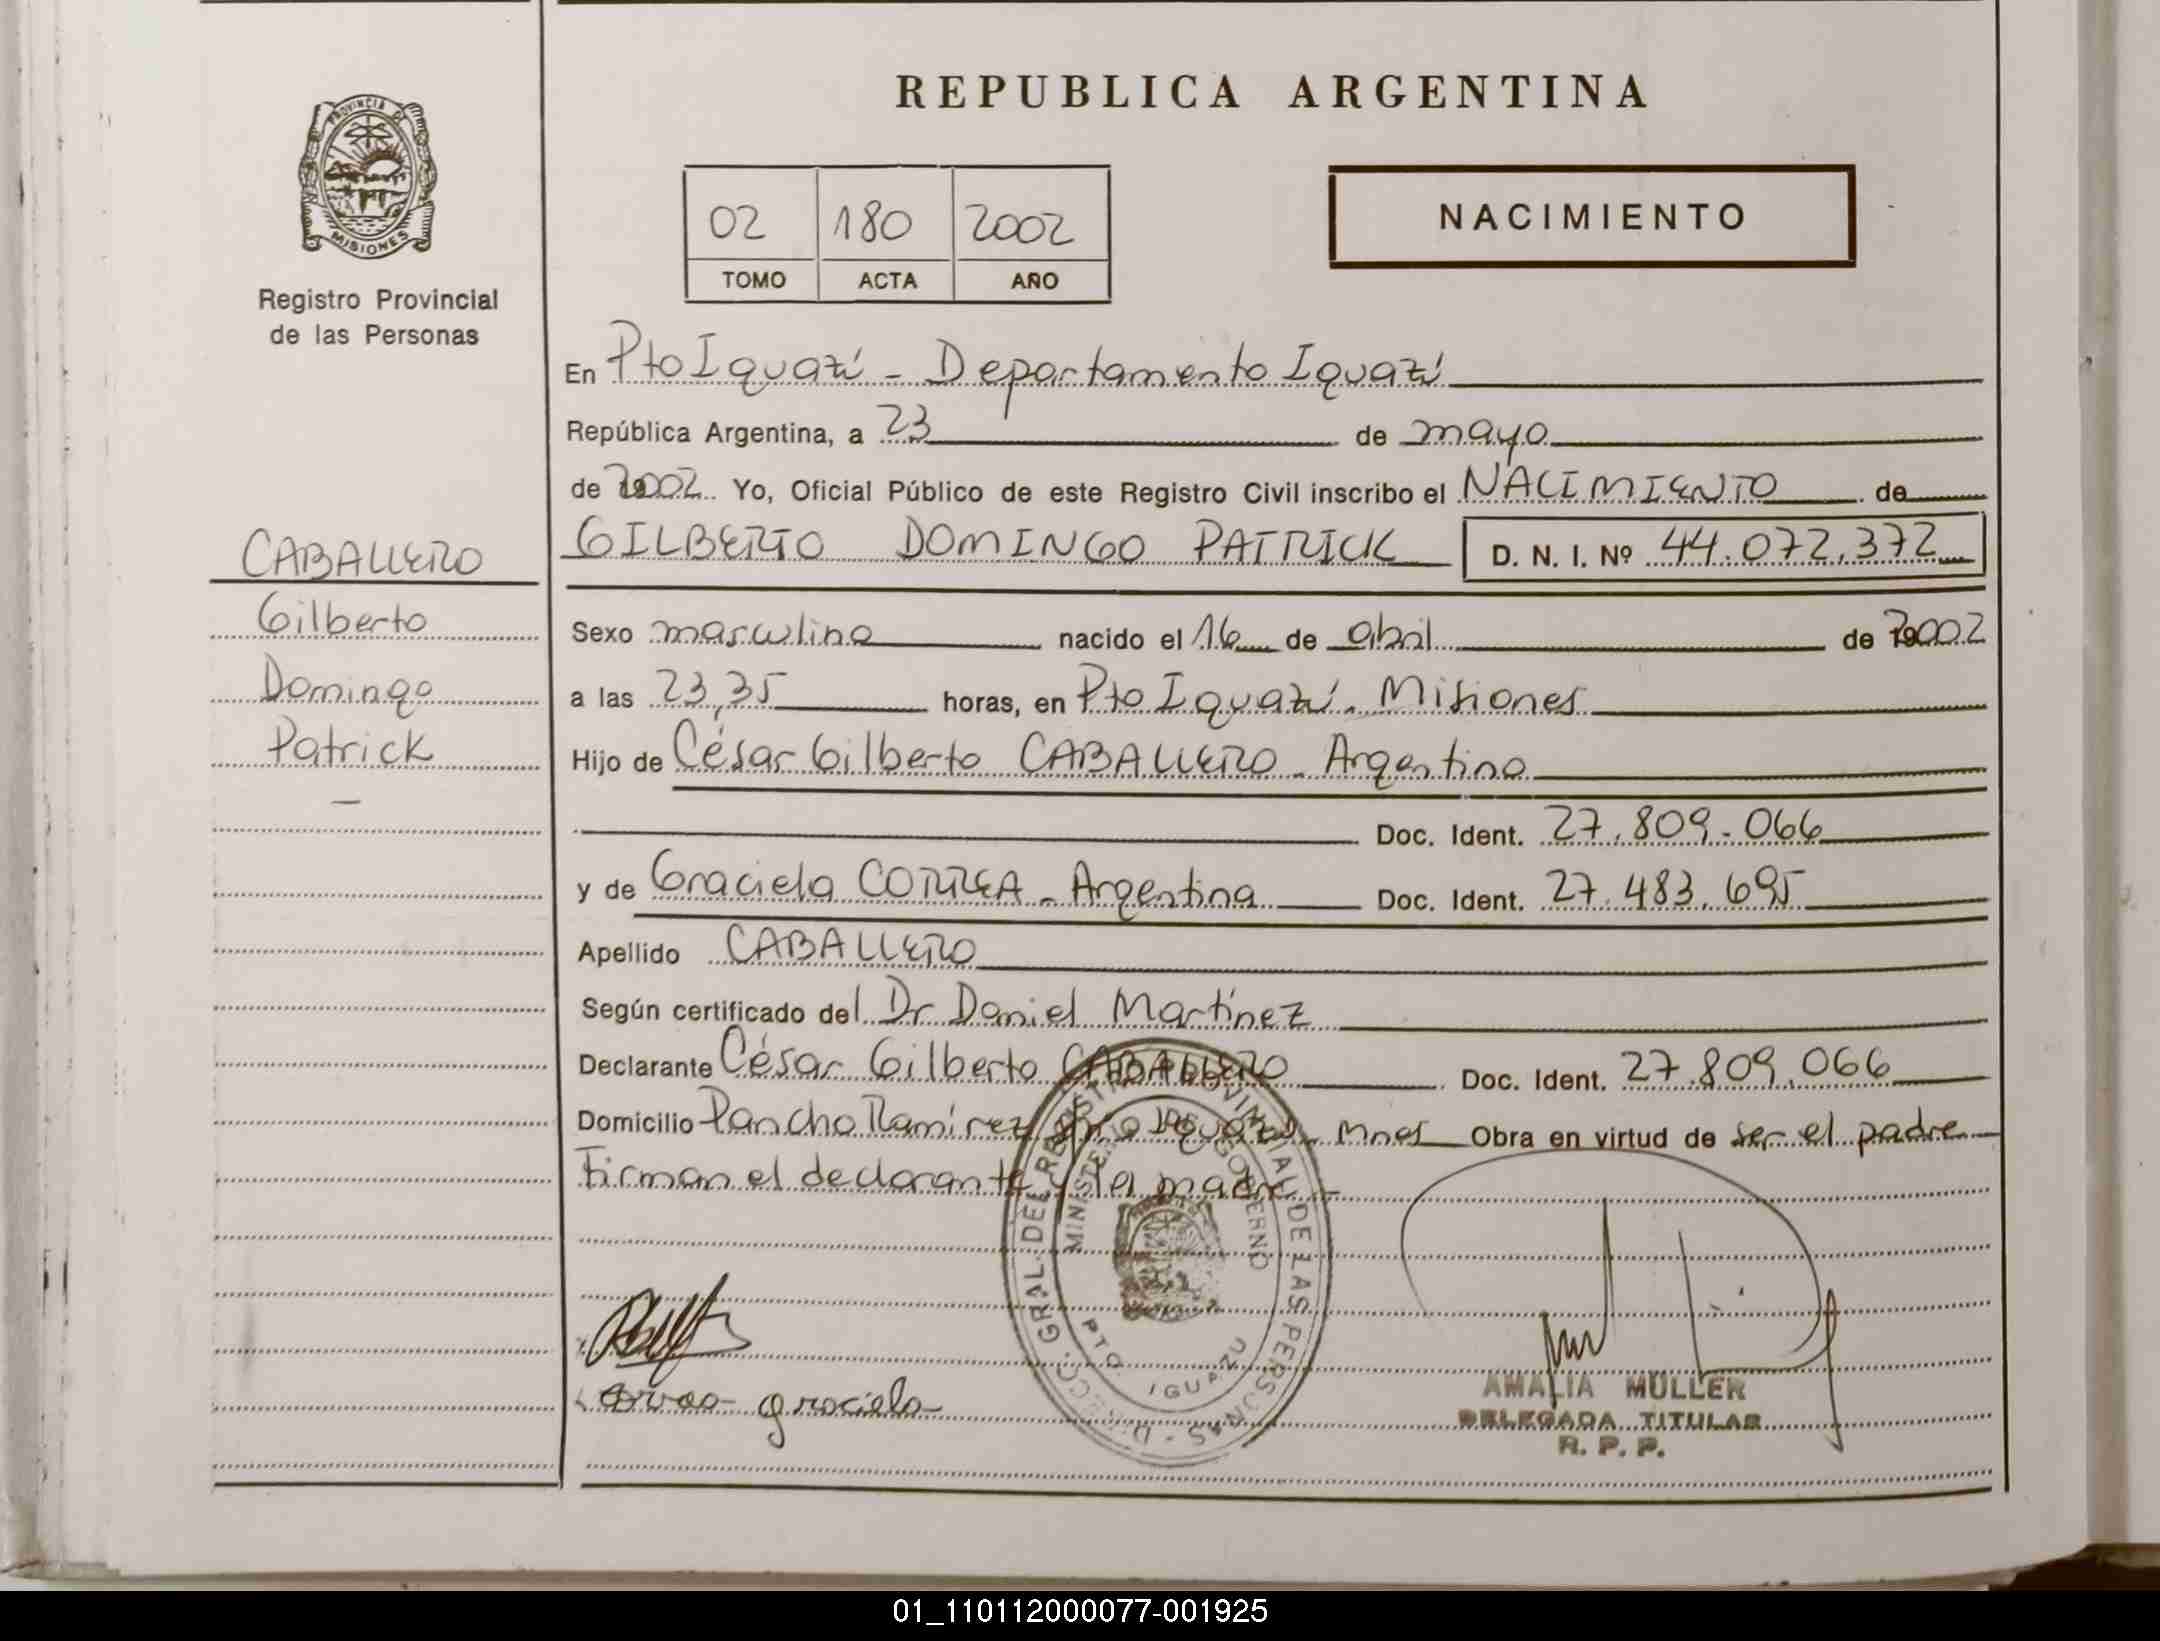 REPUBLICA ARGENTINA
PROVINCIA DE
MISIONES
Registro Provincial
de las Personas
02 180 2002
TOMO ACTA AÑO
NACIMIENTO
En Pto Iguazú - Departamento Iguazú
República Argentina, a 23 de mayo
de 2002 Yo, Oficial Público de este Registro Civil inscribo el NACIMIENTO de
GILBERTO DOMINGO PATRICK D. N. I. Nº 44.072.372
CABALLERO
Gilberto
Domingo
Patrick
Sexo masculino nacido el 16 de abril de 2002
a las 23,35 horas, en Pto Iguazú. Misiones
Hijo de César Gilberto CABALLERO - Argentino
Doc. Ident. 27.809.066
y de Graciela CORREA - Argentina Doc. Ident. 27.483.695
Apellido CABALLERO
Según certificado del Dr Daniel Martínez
Declarante César Gilberto CABALLERO Doc. Ident. 27.809.066
Domicilio Pancho Ramírez Pto Iguazú - Mnes Obra en virtud de ser el padre
Firman el declarante y la madre -
DIRECC. GRAL. DEL REGISTRO PROVINCIAL DE LAS PERSONAS
MINISTERIO DE GOBIERNO
PTO. IGUAZU
graciela
AMALIA MULLER
DELEGADA TITULAR
R. P. P.
01_110112000077-001925